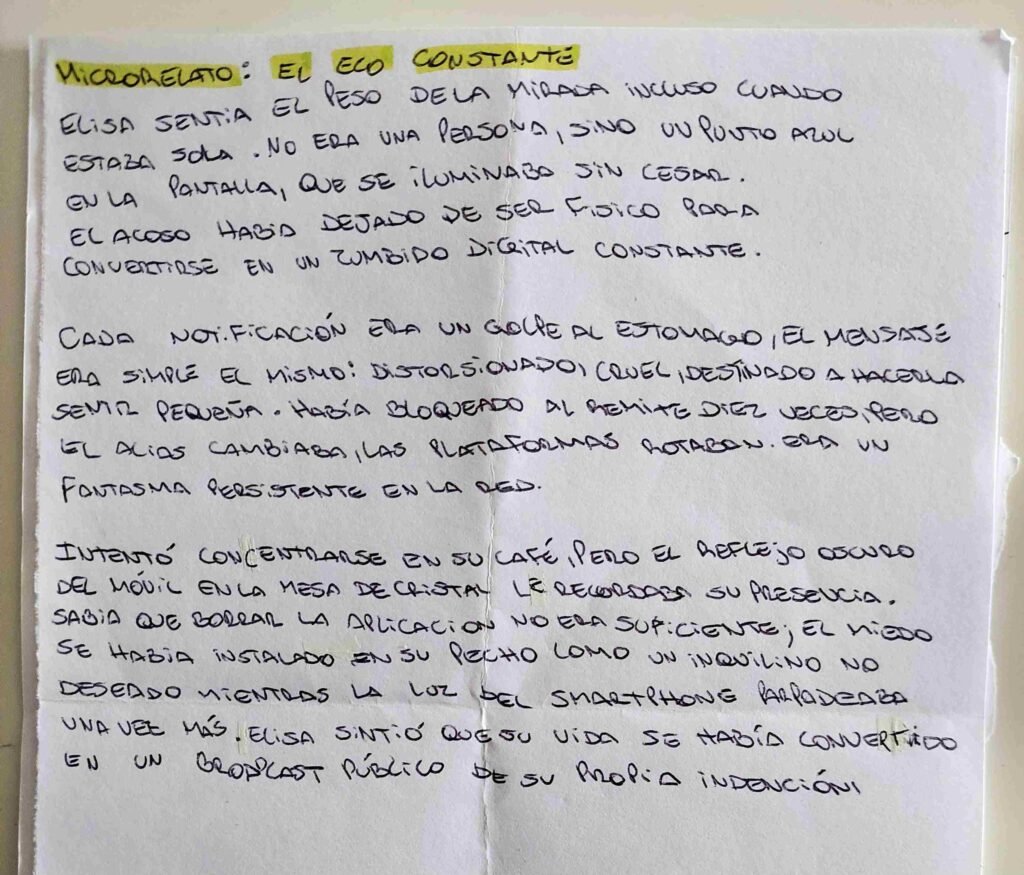 MICRORELATO: EL ECO CONSTANTE
ELISA SENTIA EL PESO DE LA MIRADA INCLUSO CUANDO
ESTABA SOLA. NO ERA UNA PERSONA, SINO UN PUNTO AZUL
EN LA PANTALLA, QUE SE ILUMINABA SIN CESAR.
EL ACOSO HABIA DEJADO DE SER FISICO PARA
CONVERTIRSE EN UN ZUMBIDO DIGITAL CONSTANTE.

CADA NOTIFICACIÓN ERA UN GOLPE AL ESTOMAGO, EL MENSAJE
ERA SIMPLE EL MISMO: DISTORSIONADO, CRUEL, DESTINADO A HACERLA
SENTIR PEQUEÑA. HABÍA BLOQUEADO AL REMITE DIEZ VECES, PERO
EL ALIAS CAMBIABA, LAS PLATAFORMAS ROTABAN. ERA UN
FANTASMA PERSISTENTE EN LA RED.

INTENTÓ CONCENTRARSE EN SU CAFÉ, PERO EL REFLEJO OSCURO
DEL MÓVIL EN LA MESA DE CRISTAL LE RECORDABA SU PRESENCIA.
SABIA QUE BORRAR LA APLICACION NO ERA SUFICIENTE; EL MIEDO
SE HABIA INSTALADO EN SU PECHO COMO UN INQUILINO NO
DESEADO MIENTRAS LA LUZ DEL SMARTPHONE PARPADEABA
UNA VEZ MÁS. ELISA SINTIÓ QUE SU VIDA SE HABÍA CONVERTIDO
EN UN BROADCAST PÚBLICO DE SU PROPIA INDENCIÓN